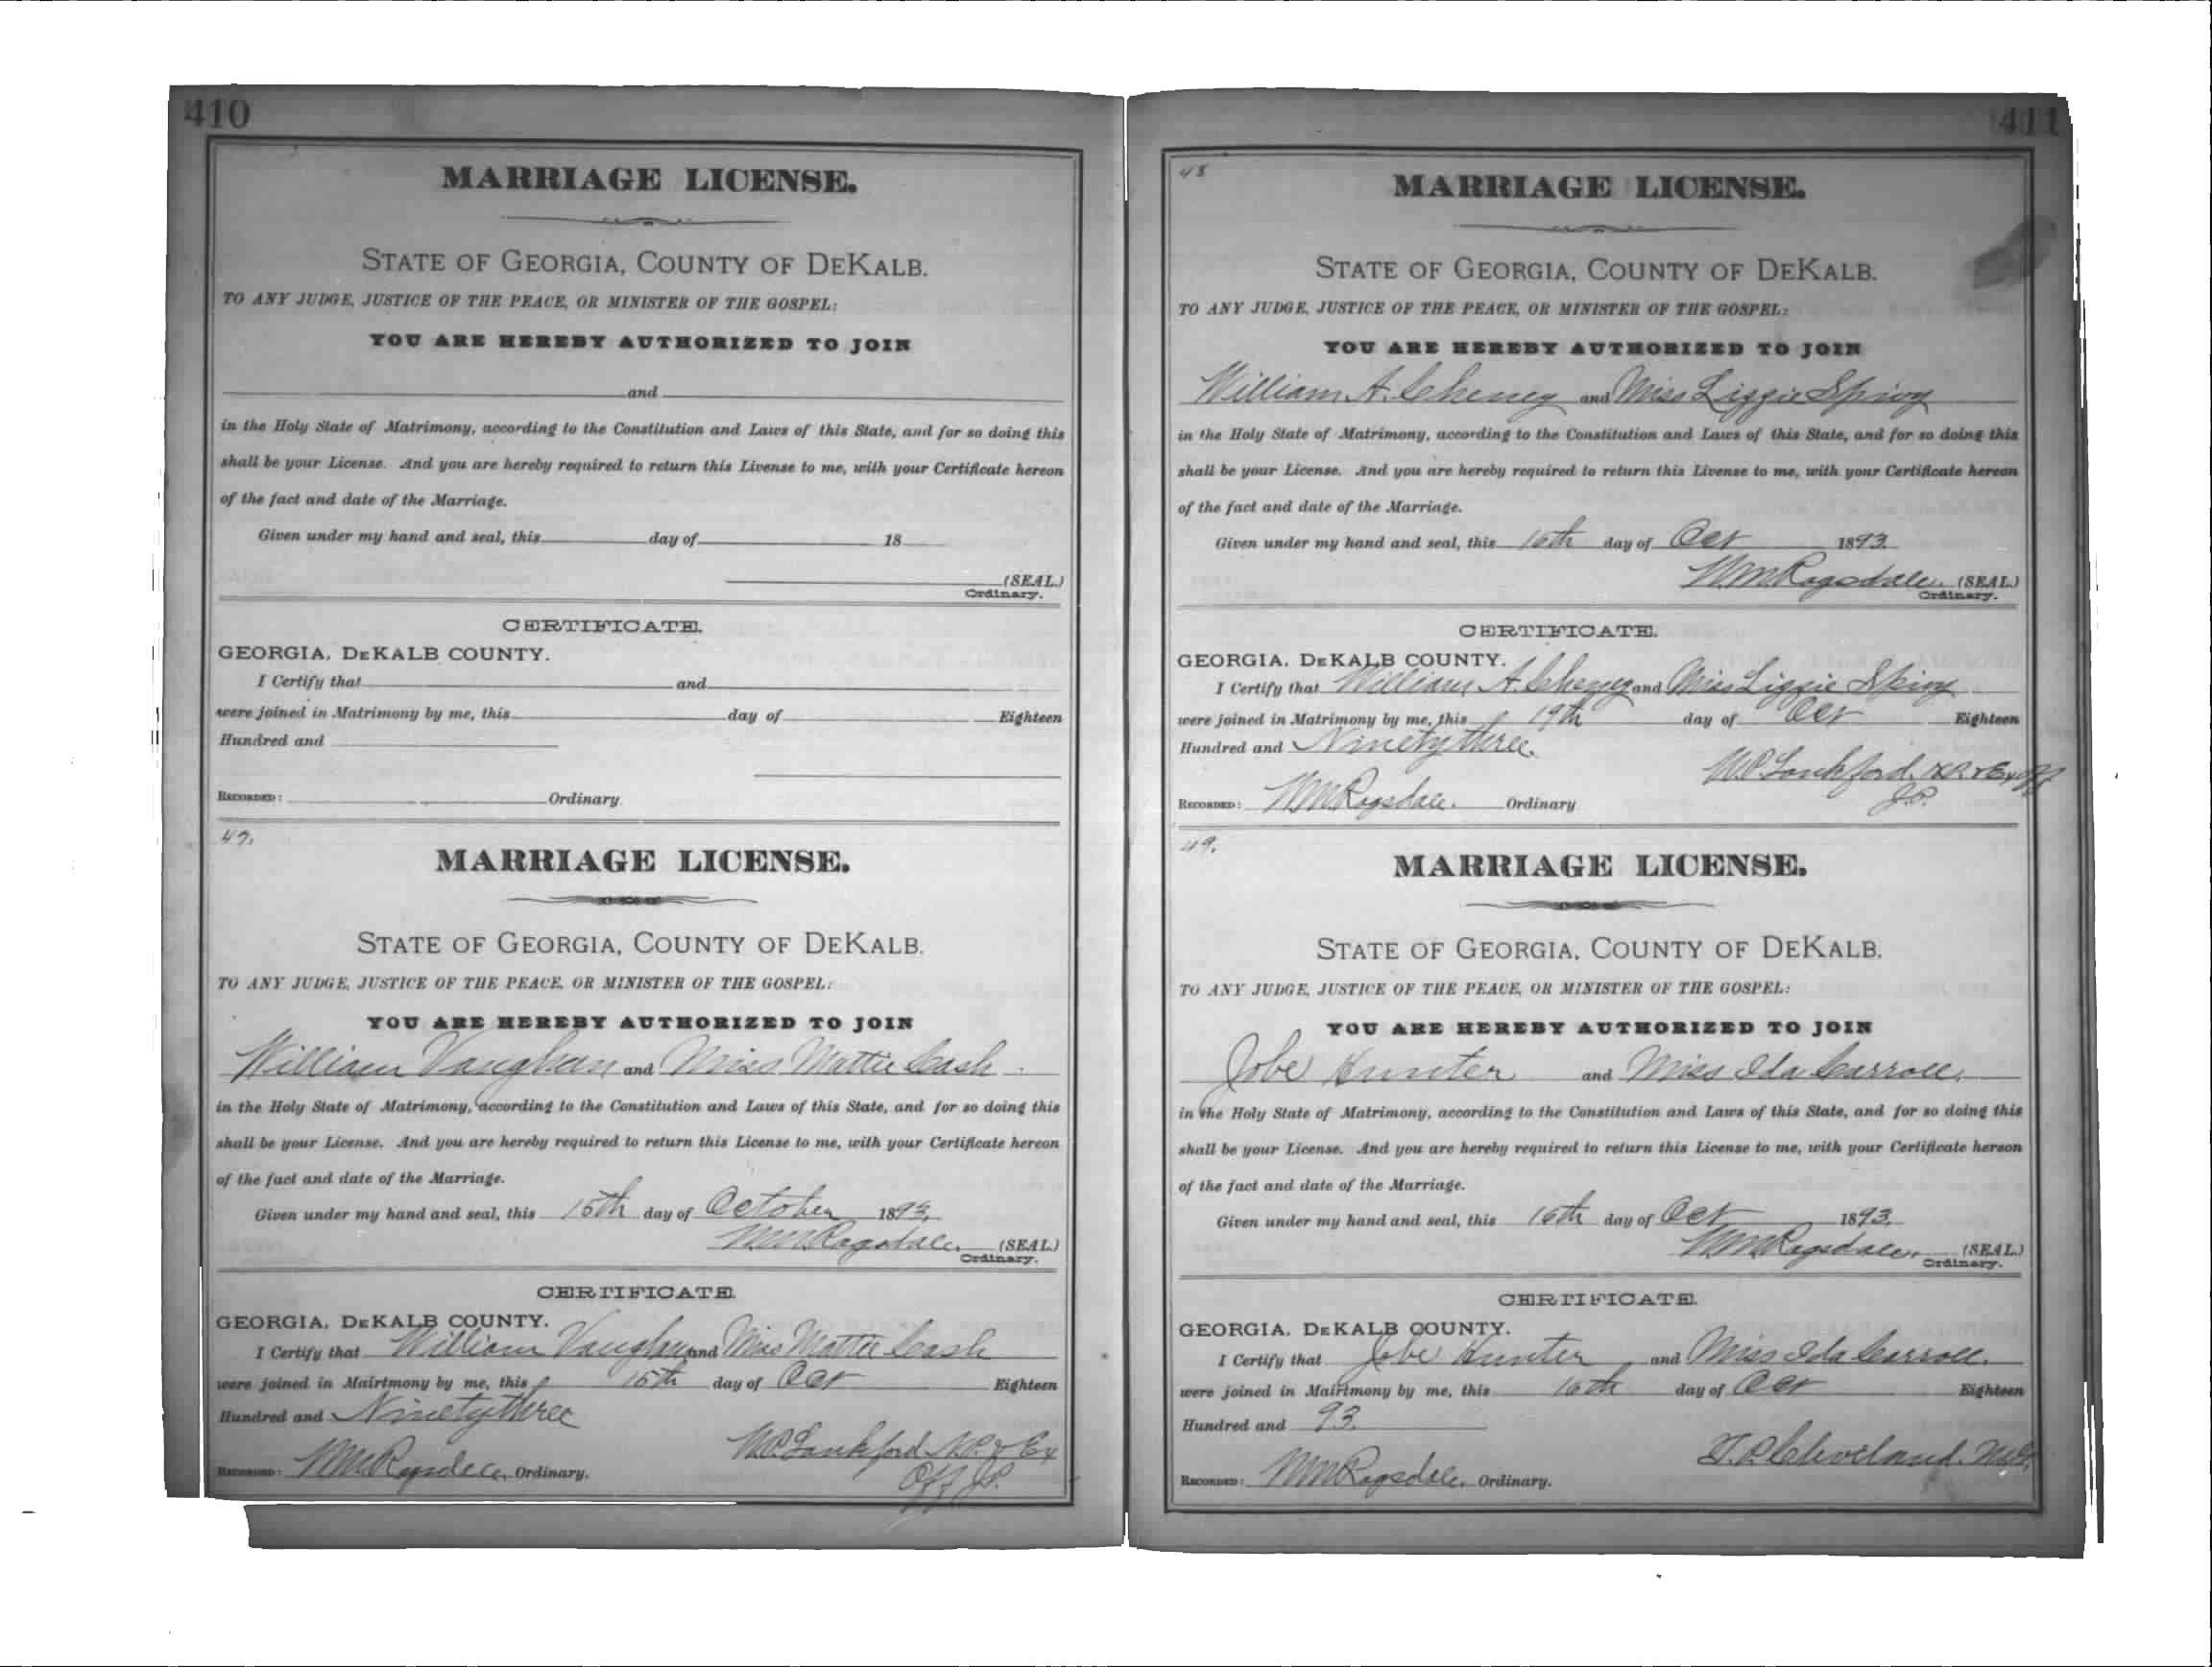 410
MARRIAGE LICENSE.
STATE OF GEORGIA, COUNTY OF DEKALB.
TO ANY JUDGE, JUSTICE OF THE PEACE, OR MINISTER OF THE GOSPEL:
YOU ARE HEREBY AUTHORIZED TO JOIN
and
in the Holy State of Matrimony, according to the Constitution and Laws of this State, and for so doing this
shall be your License. And you are hereby required to return this License to me, with your Certificate hereon
of the fact and date of the Marriage.
Given under my hand and seal, this day of 18
(SEAL.)
Ordinary.
CERTIFICATE.
GEORGIA, DEKALB COUNTY.
I Certify that and
were joined in Matrimony by me, this day of Eighteen
Hundred and
RECORDED: Ordinary.
47.
MARRIAGE LICENSE.
STATE OF GEORGIA, COUNTY OF DEKALB.
TO ANY JUDGE, JUSTICE OF THE PEACE, OR MINISTER OF THE GOSPEL:
YOU ARE HEREBY AUTHORIZED TO JOIN
William Vaughan and Miss Mattie Cash
in the Holy State of Matrimony, according to the Constitution and Laws of this State, and for so doing this
shall be your License. And you are hereby required to return this License to me, with your Certificate hereon
of the fact and date of the Marriage.
Given under my hand and seal, this 15th day of October 1893,
WMRagsdale. (SEAL.)
Ordinary.
CERTIFICATE.
GEORGIA, DEKALB COUNTY.
I Certify that William Vaughan and Miss Mattie Cash
were joined in Mairtmony by me, this 15th day of Oct Eighteen
Hundred and Ninety three
W.P. Lankford N.P. & Ex
Off J.P.
RECORDED: WMRagsdale, Ordinary.
411
48
MARRIAGE LICENSE.
STATE OF GEORGIA, COUNTY OF DEKALB.
TO ANY JUDGE, JUSTICE OF THE PEACE, OR MINISTER OF THE GOSPEL:
YOU ARE HEREBY AUTHORIZED TO JOIN
William A. Cheney and Miss Lizzie Spivy
in the Holy State of Matrimony, according to the Constitution and Laws of this State, and for so doing this
shall be your License. And you are hereby required to return this License to me, with your Certificate hereon
of the fact and date of the Marriage.
Given under my hand and seal, this 16th day of Oct 1893.
WMRagsdale. (SEAL.)
Ordinary.
CERTIFICATE.
GEORGIA, DEKALB COUNTY.
I Certify that William A. Cheney and Miss Lizzie Spivy
were joined in Matrimony by me, this 19th day of Oct Eighteen
Hundred and Ninety three.
W.P. Lankford. N.P. & Ex Off
J.P.
RECORDED: WMRagsdale. Ordinary
49.
MARRIAGE LICENSE.
STATE OF GEORGIA, COUNTY OF DEKALB.
TO ANY JUDGE, JUSTICE OF THE PEACE, OR MINISTER OF THE GOSPEL:
YOU ARE HEREBY AUTHORIZED TO JOIN
Jobe Hunter and Miss Ida Carroll.
in the Holy State of Matrimony, according to the Constitution and Laws of this State, and for so doing this
shall be your License. And you are hereby required to return this License to me, with your Certificate hereon
of the fact and date of the Marriage.
Given under my hand and seal, this 16th day of Oct 1893.
WMRagsdale. (SEAL.)
Ordinary.
CERTIFICATE.
GEORGIA, DEKALB COUNTY.
I Certify that Jobe Hunter and Miss Ida Carroll.
were joined in Mairtmony by me, this 16th day of Oct Eighteen
Hundred and 93.
Cleveland.
RECORDED: WMRagsdale. Ordinary.